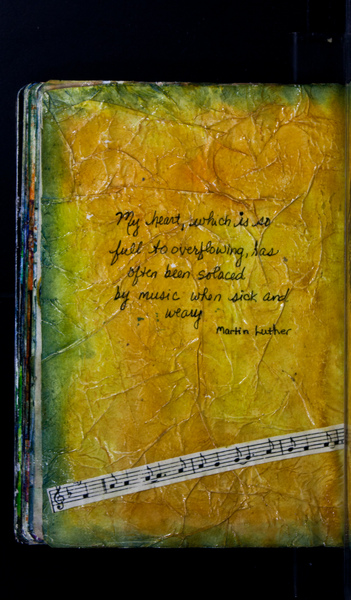 My heart, which is so
full to overflowing, has
often been solaced
by music when sick and
weary
Martin Luther